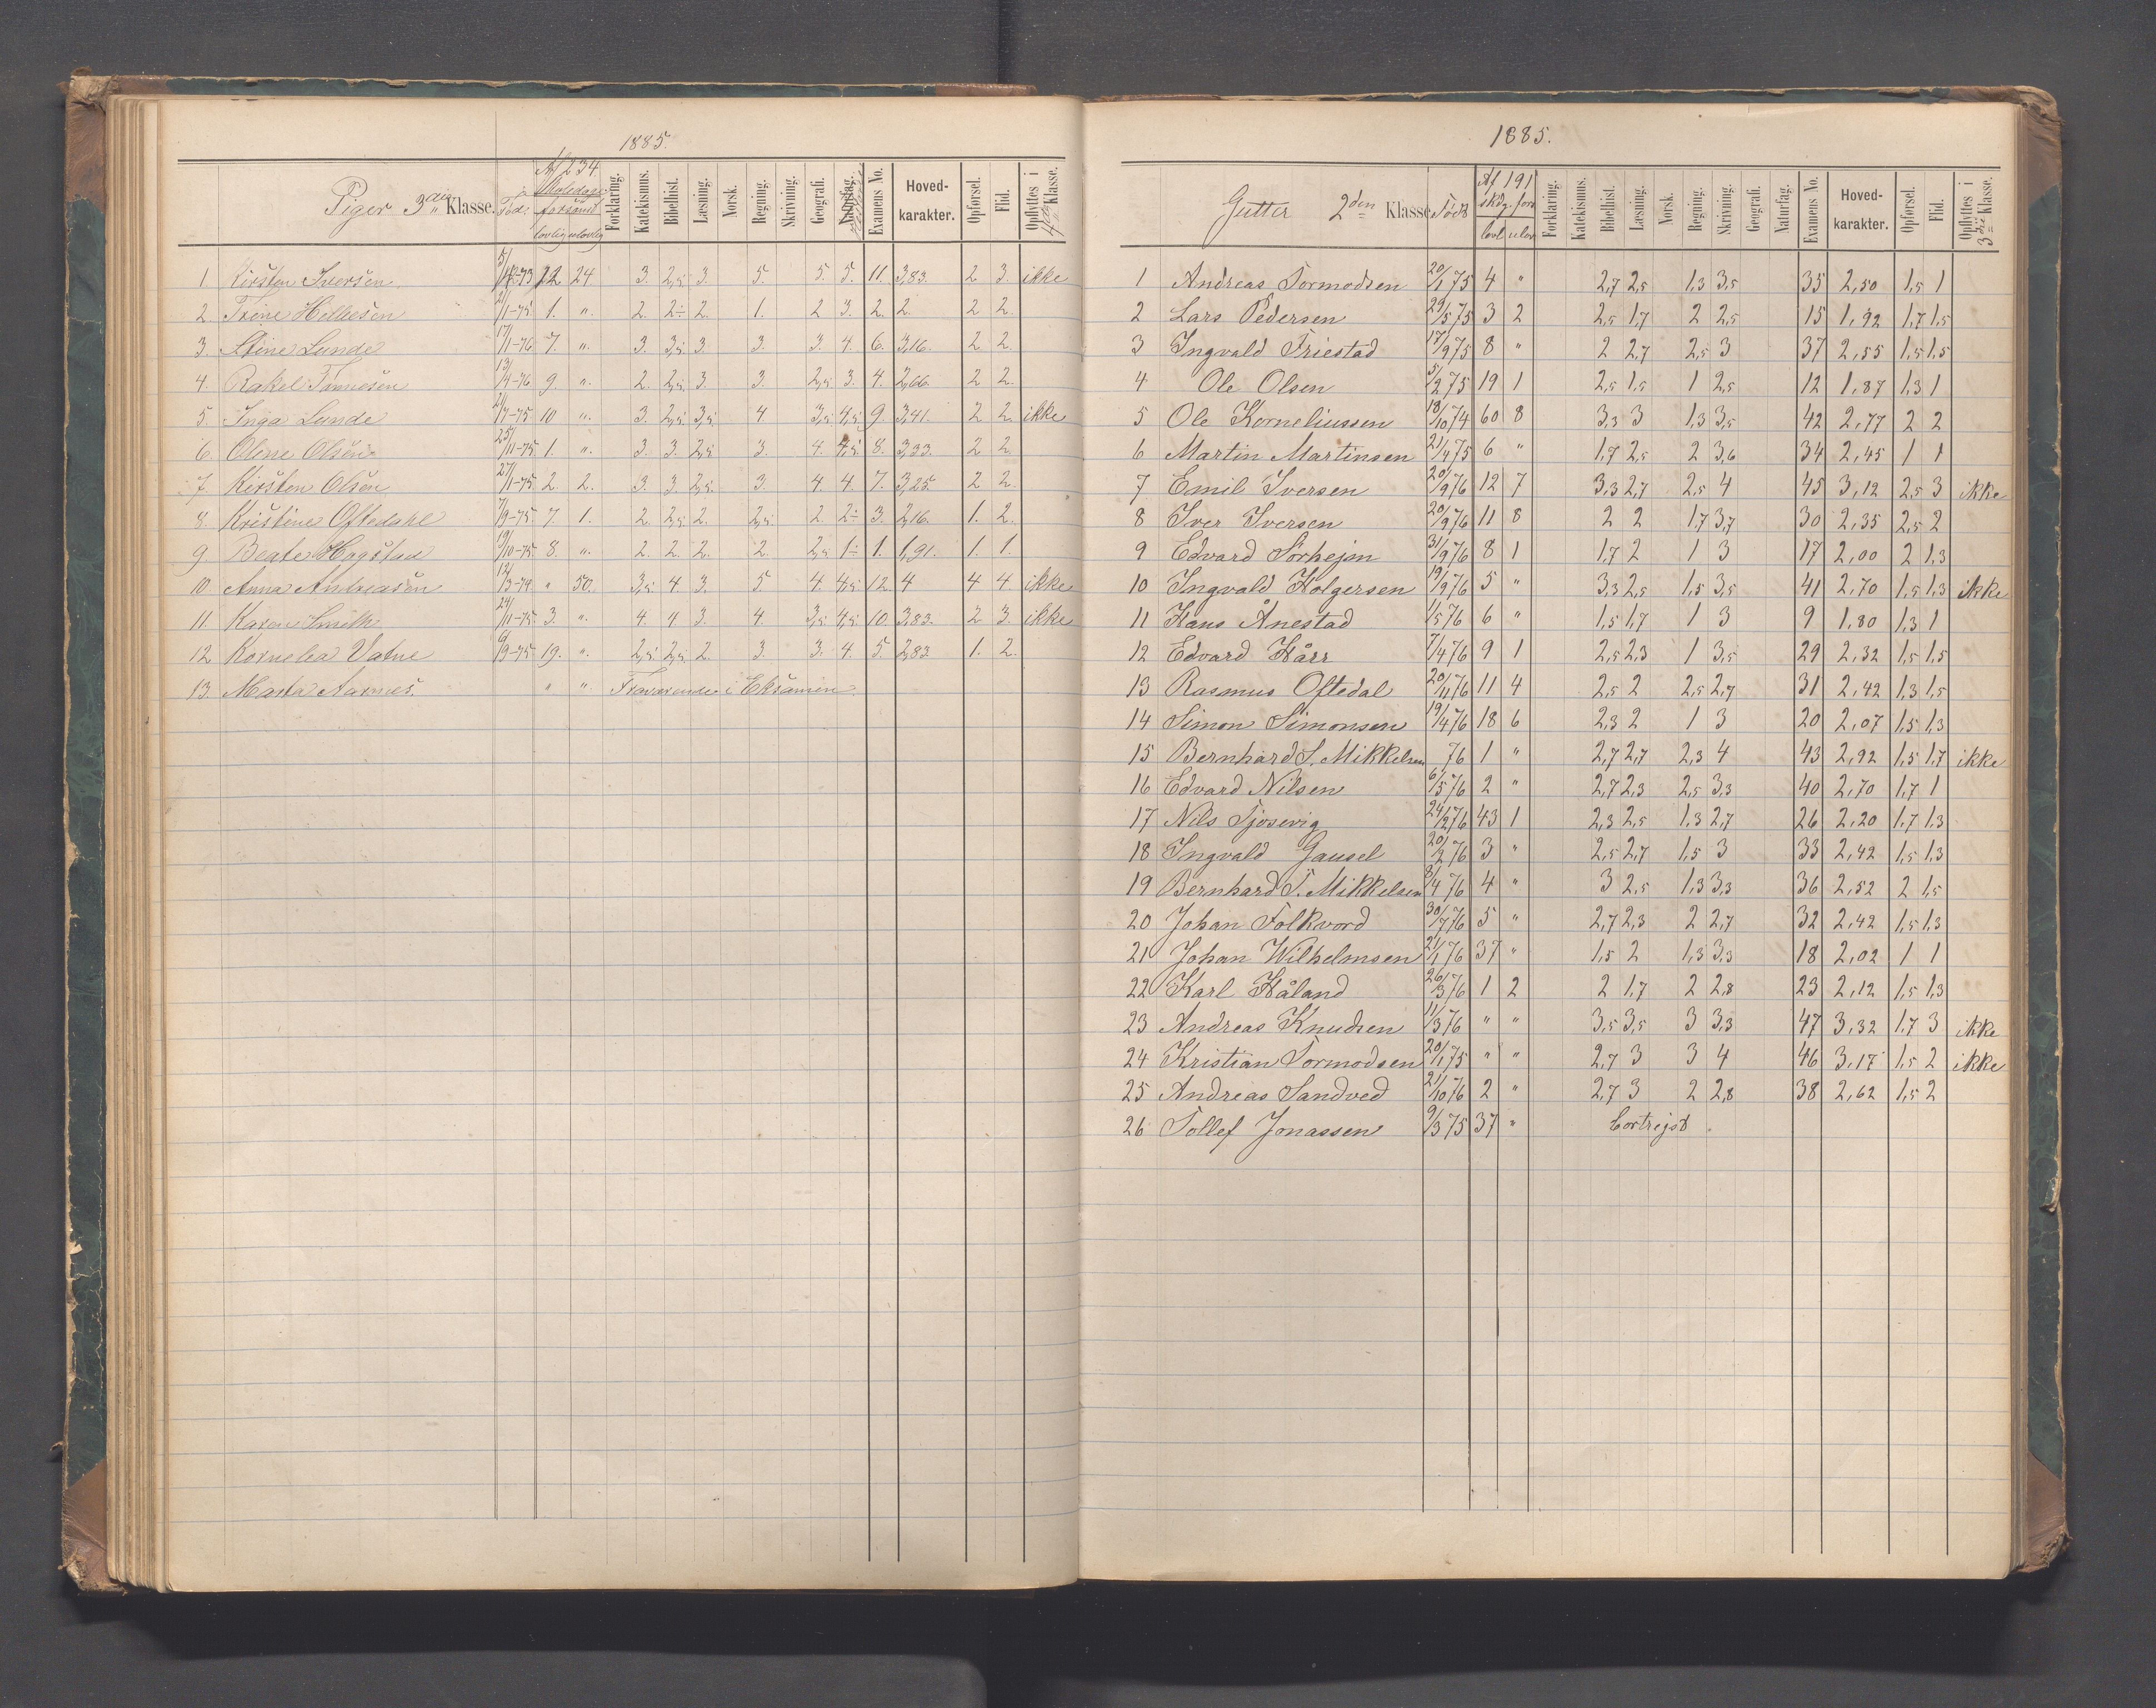 1885.
Piger 3die Klasse. Født Af 234 Skoledage forsømt lovlig ulovlig Forklaring. Katekismus. Bibelhist. Læsning. Norsk. Regning. Skrivning. Geografi. Naturfag. Examens No. Hoved-karakter. Opførsel. Flid. Opflyttes i 4de Klasse.
1. Kirsten Iversen 12 24 3. 2,5 3. 5. 5. 5. 11. 3,83. 2 3. ikke
2. Trine Hillesen 2/1-75 1. " 2. 2÷ 2. 1. 2 3. 2. 2. 2 2.
3. Stine Lunde 17/1-76 7. " 3. 3,5 3. 3. 3. 4. 6. 3,16. 2 2.
4. Rakel Tønnesen 13/4-76 9 " 2. 2,5 3. 3. 2,5 3. 4. 2,66. 2 2.
5. Inga Lunde 2/7-75 10 " 3. 2,5 3,5 4 3,5 4,5 9. 3,41. 2 2. ikke
6. Olene Olsen 25/11-75 1. " 3. 3. 2,5 3. 4. 4,5 8. 3,33. 2 2.
7. Kirsten Olsen 27/1-75 2. 2. 3. 3. 2,5. 3. 4 4. 7. 3,25. 2 2.
8. Kristine Oftedahl 7/9-75. 7. 1. 2. 2,5 2. 2,5. 2. 2÷ 3. 2,16. 1. 2.
9 Beate Hogstad 19/10-75 8. " 2. 2. 2. 2. 2,5 1÷ 1. 1,91. 1. 1.
10 Anna Andreasen 12/3-74. " 50. 3,5 4 3. 5. 4. 4,5 12. 4 4 4. ikke
11. Karen Smith 24/11-75 3. " 4. 4 3. 4. 3,5 4,5 10. 3,83. 2 3. ikke
12 Kornelia Vatne 6/9-75 19. " 2,5. 2,5 2. 3. 3. 4. 5. 2,83. 1. 2.
13. Marta Aarnes. " " Fraværende i Eksamen.
1885.
Gutter 2den Klasse Født Af 191 skdg. fors lovl ulov Forklaring. Katekismus. Bibelhist. Læsning. Norsk. Regning. Skrivning. Geografi. Naturfag. Examens No. Hoved-karakter. Opførsel. Flid. Opflyttes i 3die Klasse.
1 Andreas Tormodsen 20/1 75 4 " 2,7 2,5 1,3 3,5 35 2,50 1,5 1
2 Lars Pedersen 29/5 75 3 2 2,5 1,7 2 2,5 15 1,92 1,7 1,5
3 Ingvald Friestad 17/9 75 8 " 2 2,7 2,5 3 37 2,55 1,5 1,5
4 Ole Olsen 5/2 75 19 1 2,5 1,5 1 2,5 12 1,87 1,3 1
5 Ole Korneliussen 18/10 74 60 8 3,3 3 1,3 3,5 42 2,77 2 2
6 Martin Martinsen 21/4 75 6 " 1,7 2,5 2 3,6 34 2,45 1 1
7 Emil Iversen 20/9 76 12 7 3,3 2,7 2,5 4 45 3,12 2,5 3 ikke
8 Iver Iversen 20/9 76 11 8 2 2 1,7 3,7 30 2,35 2,5 2
9 Edvard Sørhejm 31/9 76 8 1 1,7 2 1 3 17 2,00 2 1,3
10 Ingvald Holgersen 19/9 76 5 " 3,3 2,5 1,5 3,5 41 2,70 1,5 1,3 ikke
11 Hans Ånestad 1/5 76 6 " 1,5 1,7 1 3 9 1,80 1,3 1
12 Edvard Hårr 7/4 76 9 1 2,5 2,3 1 3,5 29 2,32 1,5 1,5
13 Rasmus Oftedal 20/11 76 11 4 2,5 2 2,5 2,7 31 2,42 1,3 1,5
14 Simon Simonsen 19/4 76 18 6 2,3 2 1 3 20 2,07 1,5 1,3
15 Bernhard S. Mikkelsen 76 1 " 2,7 2,7 2,3 4 43 2,92 1,5 1,7 ikke
16 Edvard Nilsen 6/5 76 2 " 2,7 2,3 2,5 3,3 40 2,70 1,7 1
17 Nils Tjosevig 24/2 76 43 1 2,3 2,5 1,3 2,7 26 2,20 1,7 1,3
18 Ingvald Gausel 20/2 76 3 " 2,5 2,7 1,5 3 33 2,42 1,5 1,3
19 Bernhard T. Mikkelsen 8/4 76 4 " 3 2,5 1,3 3,3 36 2,52 2 1,5
20 Johan Folkvord 30/7 76 5 " 2,7 2,3 2 2,7 32 2,42 1,5 1,3
21 Johan Wilhelmsen 21/1 76 37 " 1,5 2 1,3 3,3 18 2,02 1 1
22 Karl Håland 26/3 76 1 2 2 1,7 2 2,8 23 2,12 1,5 1,3
23 Andreas Knudsen 11/3 76 " " 3,5 3,5 3 3,3 47 3,32 1,7 3 ikke
24 Kristian Tormodsen 20/1 75 " " 2,7 3 3 4 46 3,17 1,5 2 ikke
25 Andreas Sandved 21/10 76 2 " 2,7 3 2 2,8 38 2,62 1,5 2
26 Tollef Jonassen 9/3 75 37 " bortrejst.